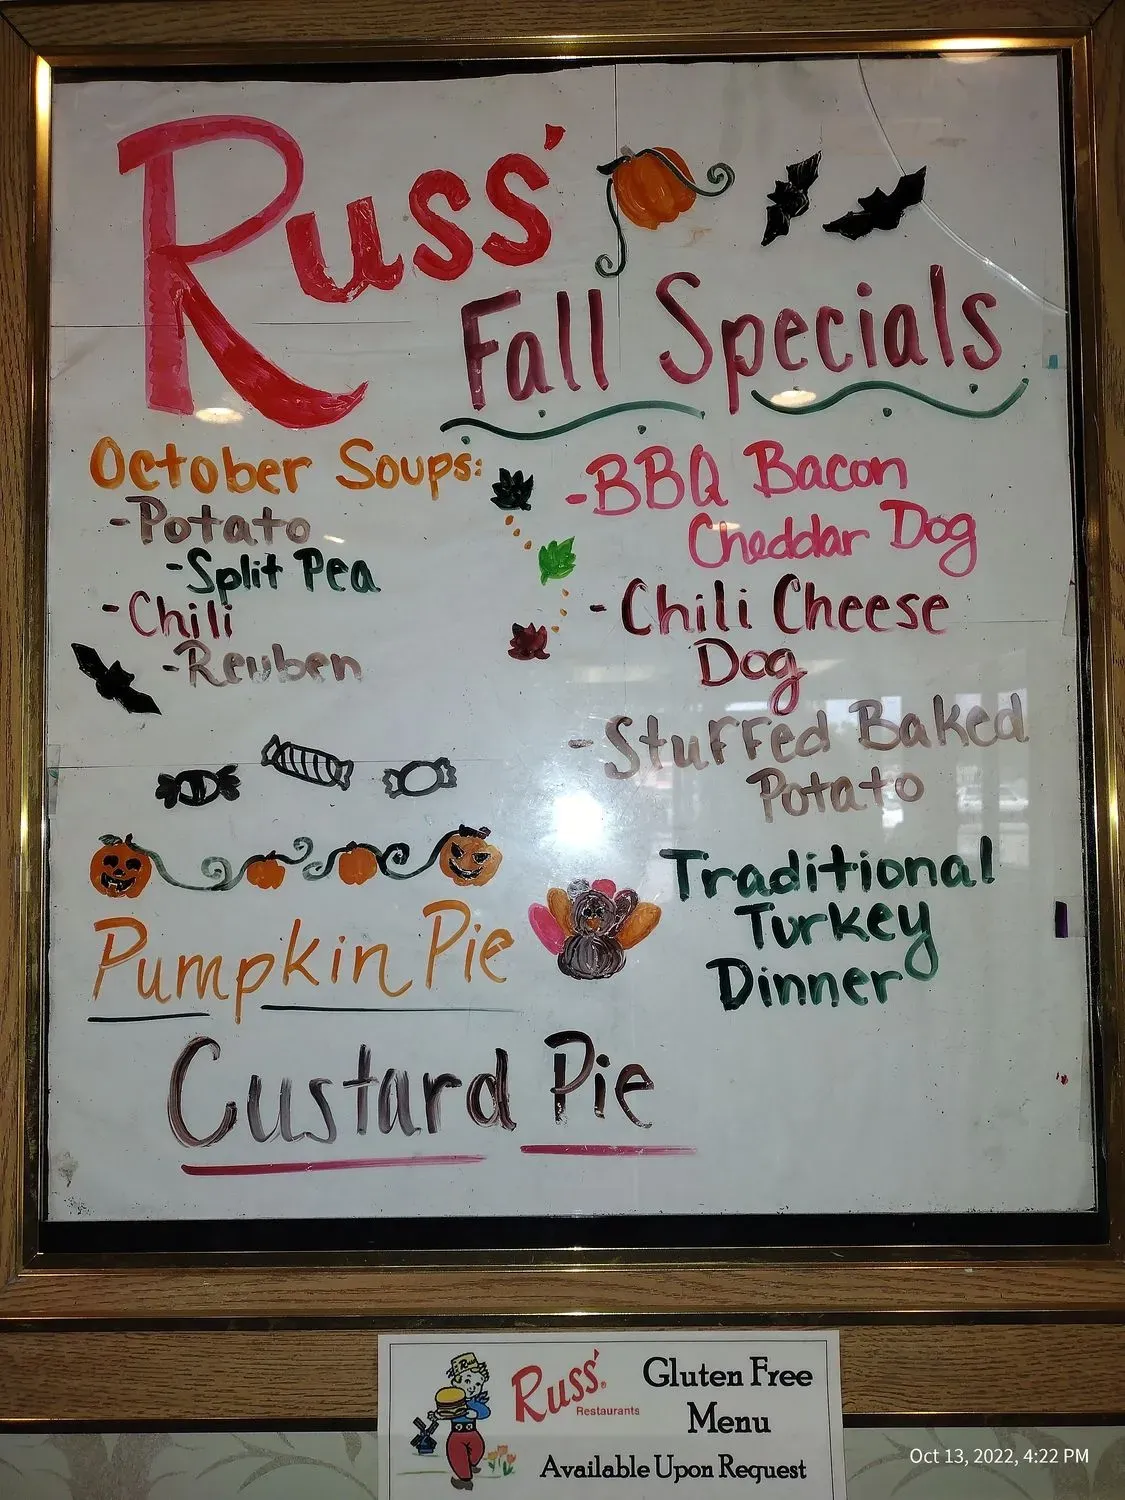 Russ'
Fall Specials
October Soups:
-Potato
-Split Pea
-Chili
-Reuben
-BBQ Bacon
Cheddar Dog
-Chili Cheese
Dog
-Stuffed Baked
Potato
Traditional
Turkey
Dinner
Pumpkin Pie
Custard Pie
Russ'
Russ'®
Restaurants
Gluten Free
Menu
Available Upon Request
Oct 13, 2022, 4:22 PM